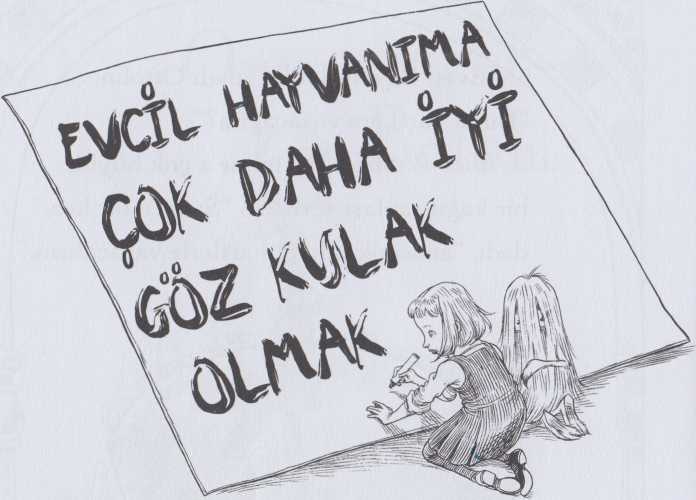 EVCİL HAYVANIMA
ÇOK DAHA İYİ
GÖZ KULAK
OLMAK